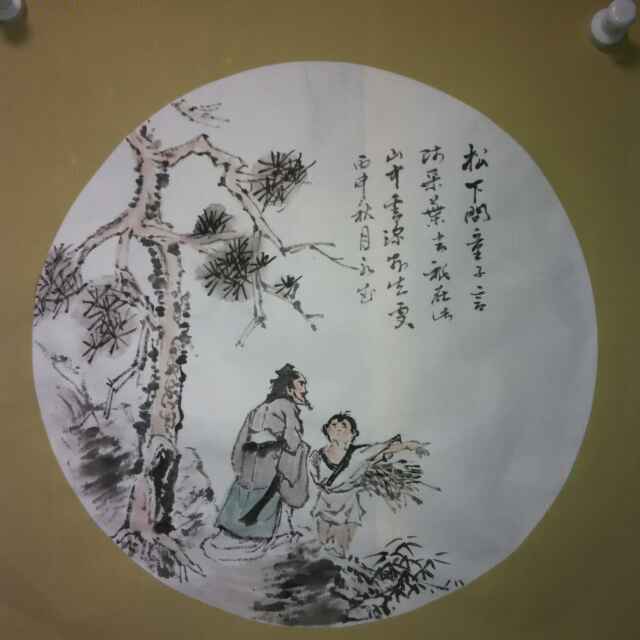 松下問童子言
師采藥去祇在此
山中雲深不知處
丙申秋月